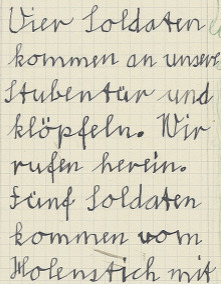 Vier Soldaten
kommen an unsere
Stubentür und
klöpfeln. Wir
rufen herein.
Fünf Soldaten
kommen vom
Holenstich mit